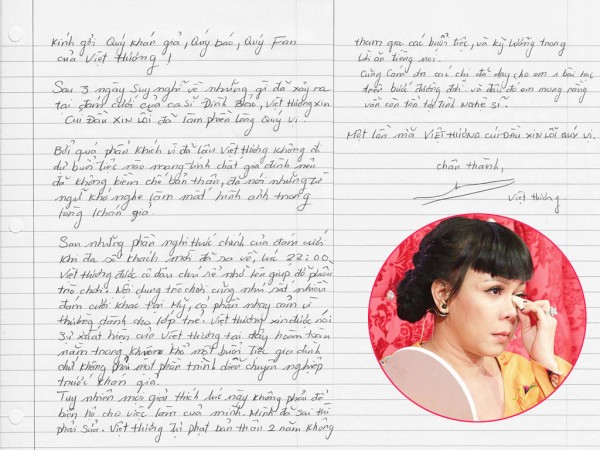 Kính gởi Quý khán giả, Quý báo, Quý Fan
của Việt Hương !
Sau 3 ngày suy nghĩ về những gì đã xảy ra
tại đám cưới của ca sĩ Đình Bảo, Việt Hương xin
CÚI ĐẦU XIN LỖI đã làm phiền lòng Quý vị.
Bởi quá phấn khích vì đã lâu Việt Hương không đi
dự buổi tiệc nào mang tính chất gia đình nên
đã không kiềm chế bản thân, đã nói những từ
ngữ khó nghe làm mất hình ảnh trong
lòng khán giả.
Sau những phần nghi thức chính của đám cưới
khi đa số khách mời đã ra về, lúc 22:00
Việt Hương được cô dâu chú rể nhờ lên giúp đỡ phần
trò chơi. Nội dung trò chơi cũng như rất nhiều
đám cưới khác tại Mỹ, có phần nhạy cảm vì
thường dành cho lớp trẻ. Việt Hương xin được nói
sự xuất hiện của Việt Hương tại đây hoàn toàn
nằm trong khuôn khổ một buổi tiệc gia đình
chứ không phải một phần trình diễn chuyên nghiệp
trước khán giả.
Tuy nhiên mọi giải thích lúc này không phải để
biện hộ cho việc làm của mình. Mình đã sai thì
phải sửa. Việt Hương tự phạt bản thân 2 năm không
tham gia các buổi tiệc, và kỹ lưỡng trong
lời ăn tiếng nói.
Cũng cám ơn các chị đã dạy cho em 1 bài học
trên bước đường đời và đâu đó em mong rằng
vẫn còn tồn tại tình nghệ sĩ.
Một lần nữa VIỆT HƯƠNG CÚI ĐẦU XIN LỖI QUÝ VỊ.
chân thành,
Việt Hương